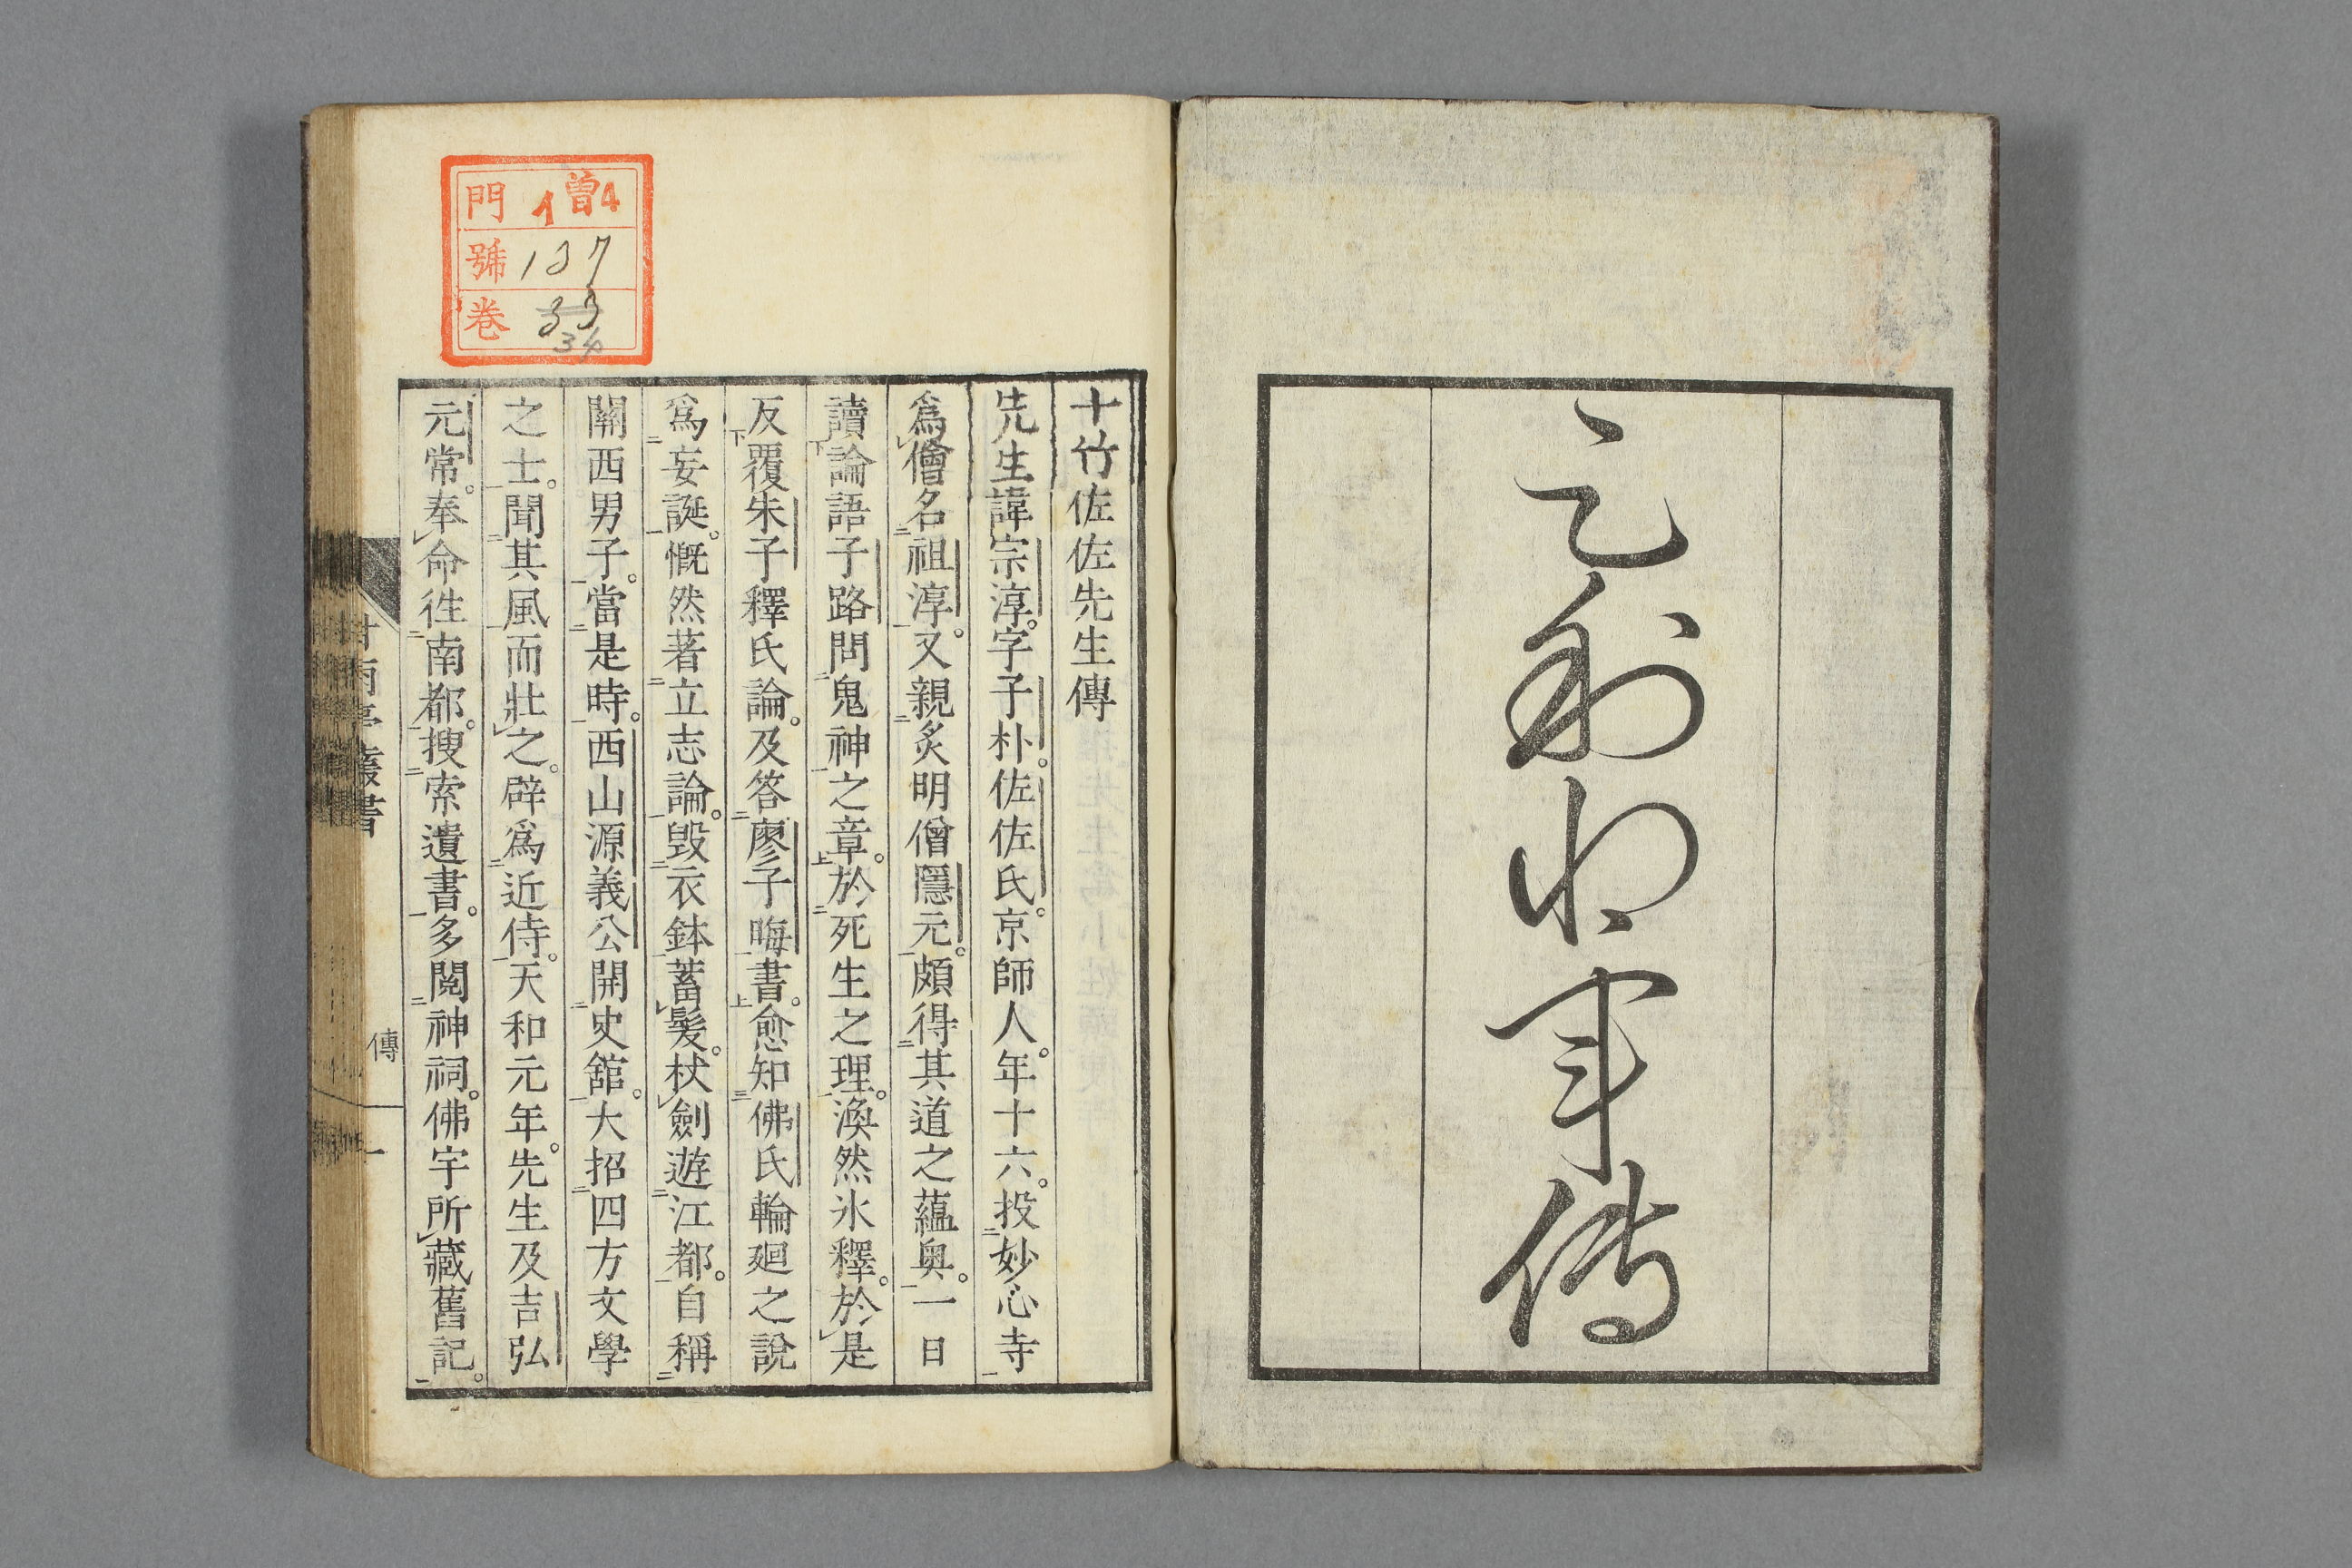 足利将軍傳
門 イ曽4
號 137
卷 33
34
十竹佐佐先生傳
先生諱宗淳。字子朴。佐佐氏。京師人。年十六。投妙心寺
爲僧名祖淳。又親炙明僧隱元。頗得其道之蘊奥。一日
讀論語子路問鬼神之章。於死生之理。渙然氷釋。於是
反覆朱子釋氏論。及答廖子晦書。愈知佛氏輪廻之說
爲妄誕。慨然著立志論。毀衣鉢蓄髪。杖劍遊江都。自稱
關西男子。當是時。西山源義公開史舘。大招四方文學
之士。聞其風而壯之。辟爲近侍。天和元年。先生及吉弘
元常。奉命往南都。搜索遺書。多閱神祠。佛宇所藏舊記。
甘雨亭叢書 傳 一